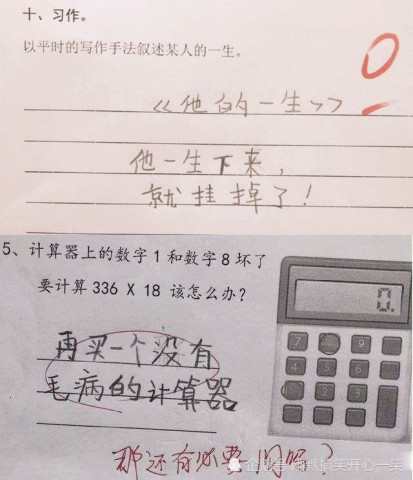 十、习作。
以平时的写作手法叙述某人的一生。
0
《他的一生》
他一生下来，
就挂掉了！
5、计算器上的数字1和数字8坏了
要计算336 X 18 该怎么办？
0.
7 9
4 5 6
再买一个没有
毛病的计算器
那还有必要问吗？
默搞笑开心一笑